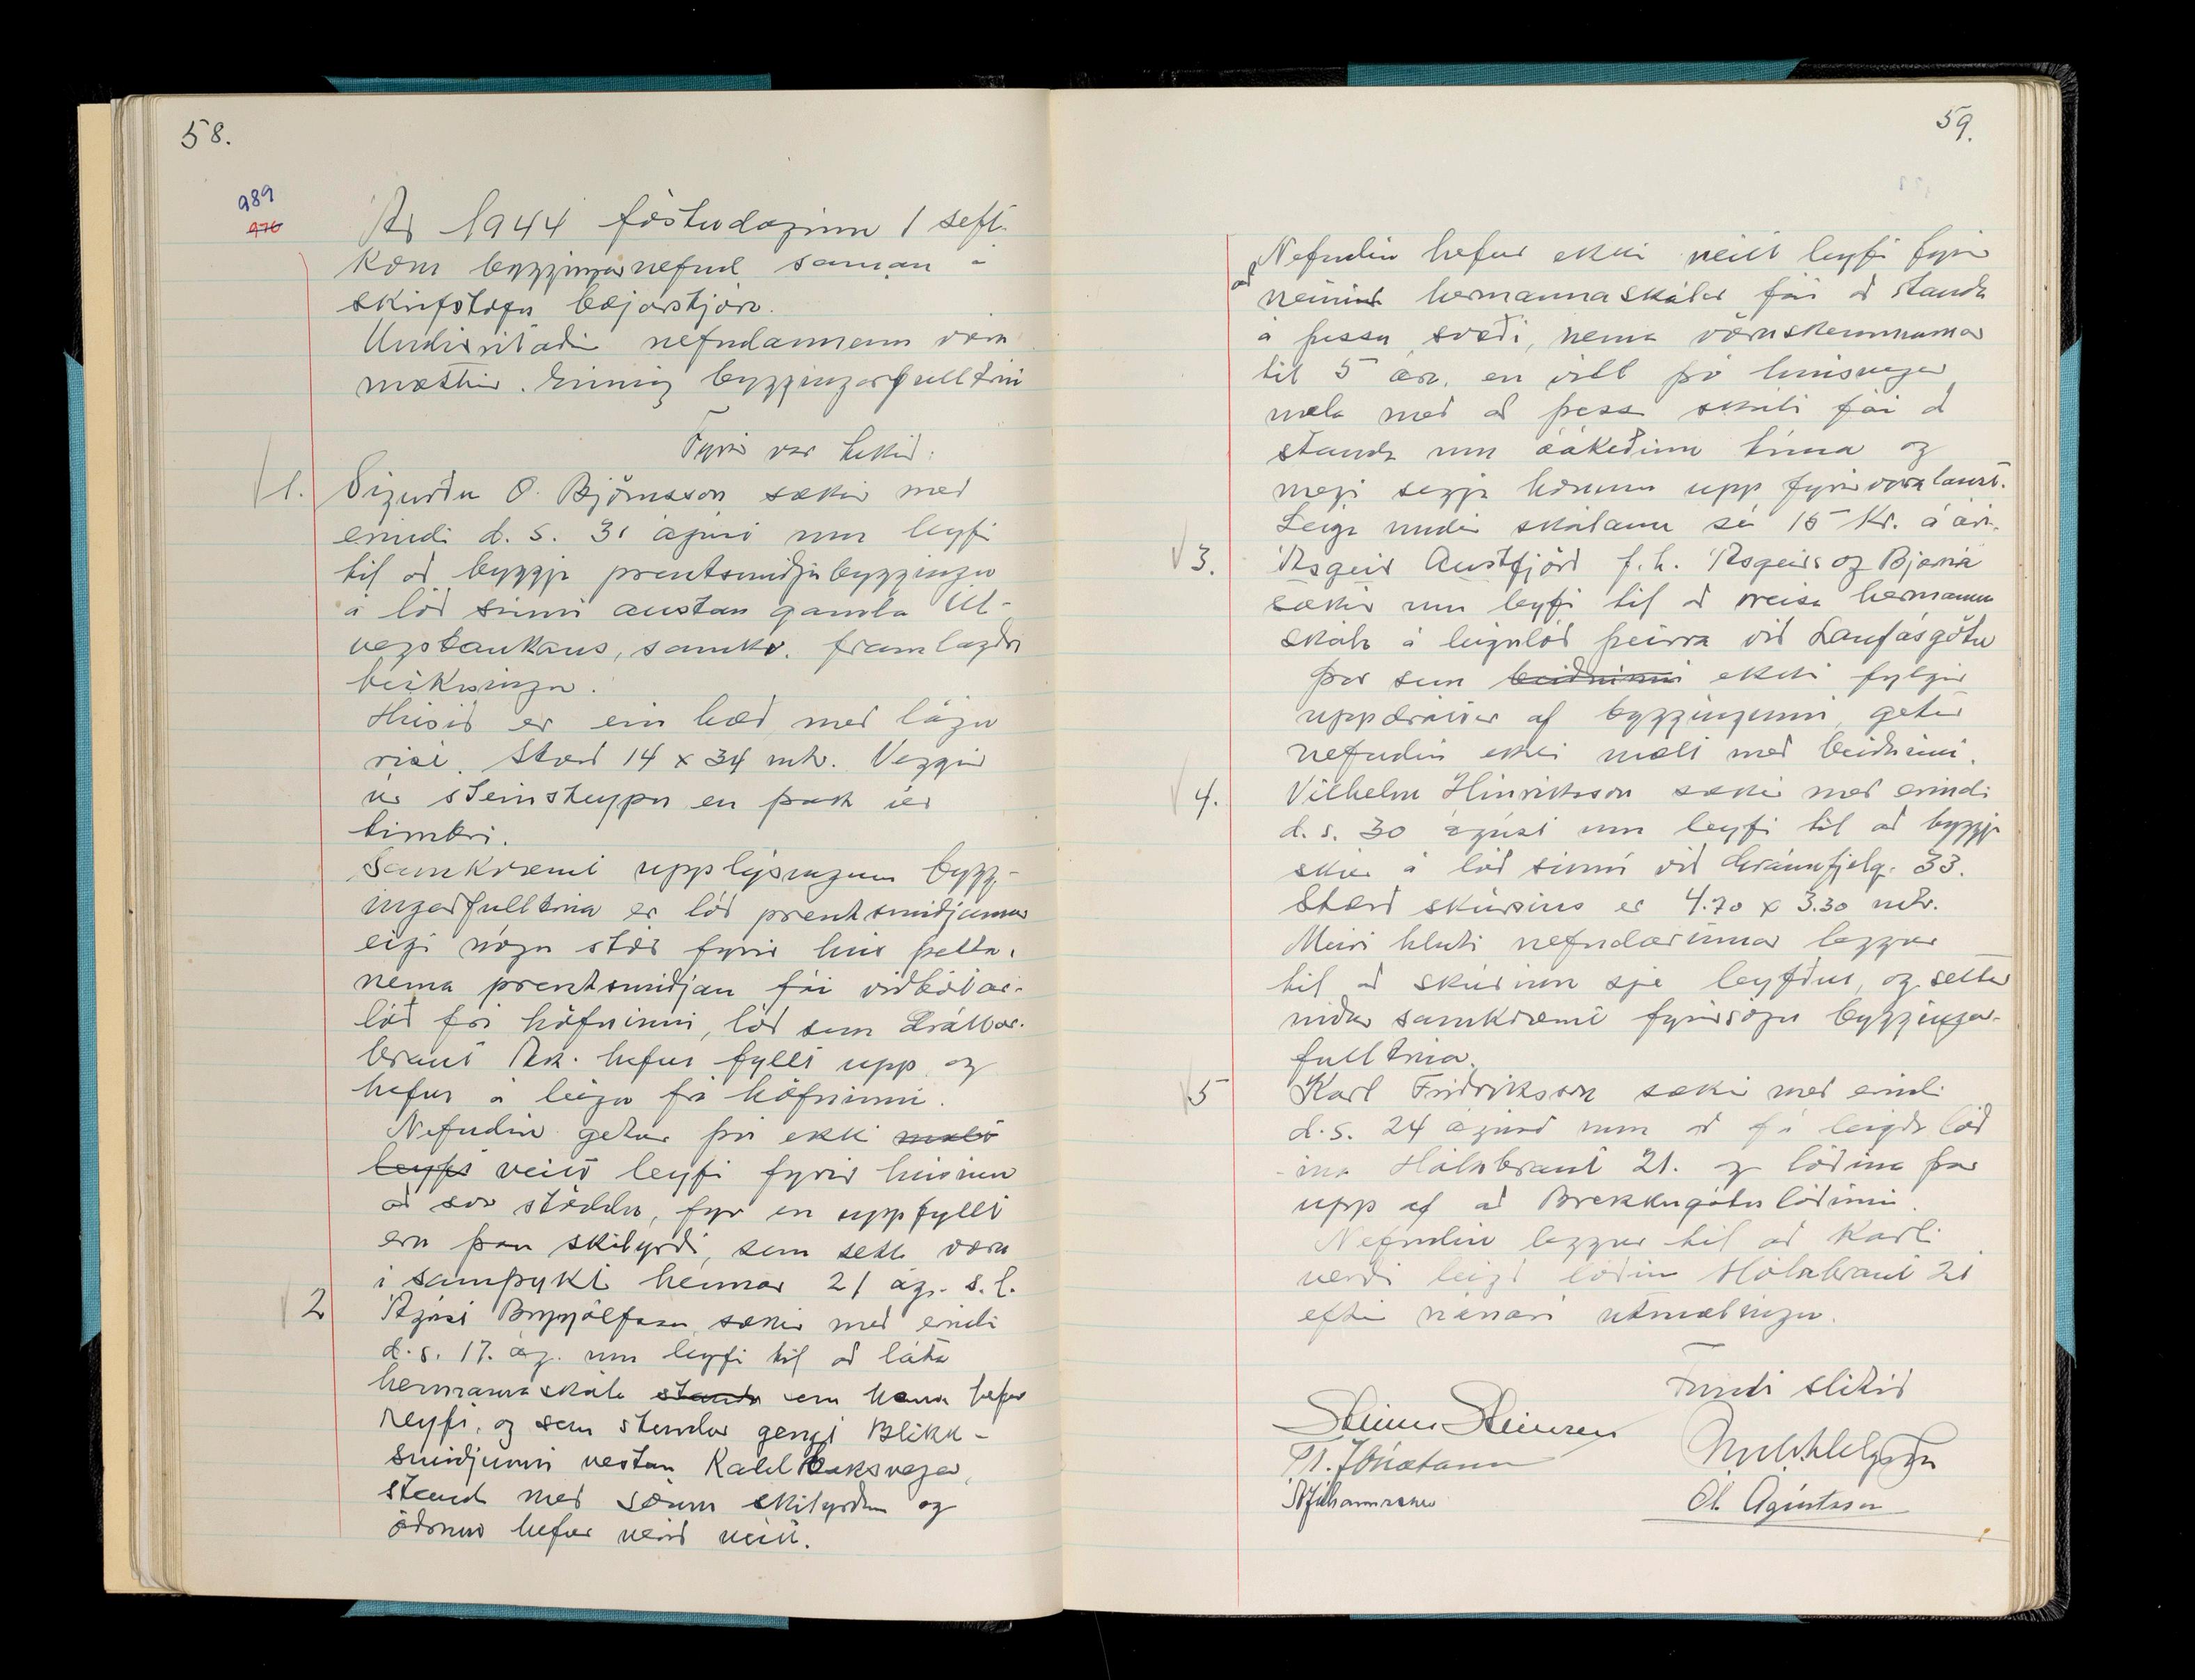 58.
989
976
Ár 1944 föstudaginn 1 sept.
kom bygginganefnd saman á
skrifstofu bæjarstjóra.
Undirritaðir nefndarmenn voru
mættir. Einnig byggingarfulltrúi
Fyrir var tekið:
1. Sigurður O. Björnsson sækir með
erindi d. s. 31 ágúst um leyfi
til að byggja prentsmiðjubyggingu
á lóð sinni austan gamla Út-
vegsbankans, samkv. framlagðri
teikningu.
Húsið er ein hæð með lágu
risi. Stærð 14 x 34 mtr. Veggir
úr steinsteypu en þak úr
timbri.
Samkvæmt upplýsingum bygg-
ingarfulltrúa er lóð prentsmiðjunnar
eigi nógu stór fyrir hús þetta,
nema prentsmiðjan fái viðbótar-
lóð frá höfninni, lóð sem Dráttar-
braut Ak. hefur fyllt upp og
hefur á leigu frá höfninni.
Nefndin getur því ekki mælt
leyft veitt leyfi fyrir húsinu
að svo stöddu, fyr en uppfyllt
eru þau skilyrði, sem sett voru
í samþykt hennar 21 ág. s. l.
2 Ágúst Brynjólfsson sækir með erindi
d. s. 17. ág. um leyfi til að láta
hermannaskála standa sem hann hefur
reyft, og sem stendur gengt Blikk-
smiðjunni vestan Kaldbaksvegar,
standa með sömu skilyrðum og
öðrum hefur verið veitt.
59.
Nefndin hefur ekki veitt leyfi fyrir
að neinir hermannaskálar fái að standa
á þessu svæði, nema vöruskemmurnar
til 5 ára, en vill þó hinsvegar
mæla með að þessi skáli fái að
standa um óákeðinn tíma og
megi segja honum upp fyrirvaralaust.
Leiga undir skálann sé 15 kr. á ári.
3. Ásgeir Austfjörð f. h. Ásgeirs og Bjarna
sækir um leyfi til að reisa hermanna
skála á leigulóð þeirra við Laufásgötu
Þar sem beiðninni ekki fylgir
uppdráttur af byggingunni, getur
nefndin ekki mælt með beiðninni.
4. Vilhelm Hinriksson sækir með erindi
d. s. 30 ágúst um leyfi til að byggja
skúr á lóð sinni við Gránufjelg. 33.
Stærð skúrsins er 4.70 x 3.30 mtr.
Meiri hluti nefndarinnar leggur
til að skúrinn sje leyfður, og settur
niður samkvæmt fyrirsögn byggingar-
fulltrúa.
5 Karl Friðriksson sækir með erindi
d. s. 24 ágúst um að fá leigða lóð
ina Hólabraut 21. og lóðina þar
upp af að Brekkugötu lóðinni.
Nefndin leggur til að Karli
verði leigð lóðin Hólabraut 21
eftir nánari útmælingu.
Fundi slitið
Steinn Steinsen
Ól. Ágústsson